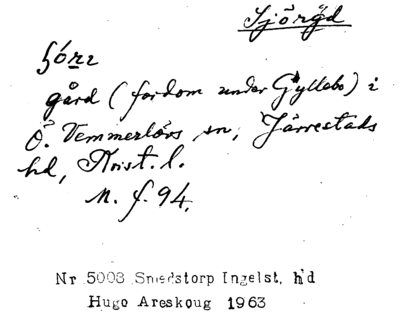 Sjöröd
gård (fordom under Gyllebo) i
Ö. Vemmerlövs sn, Järrestads
hd, Krist. l.
M. f. 94.
Nr 5008 Smedstorp Ingelst. h'd
Hugo Areskoug 1963